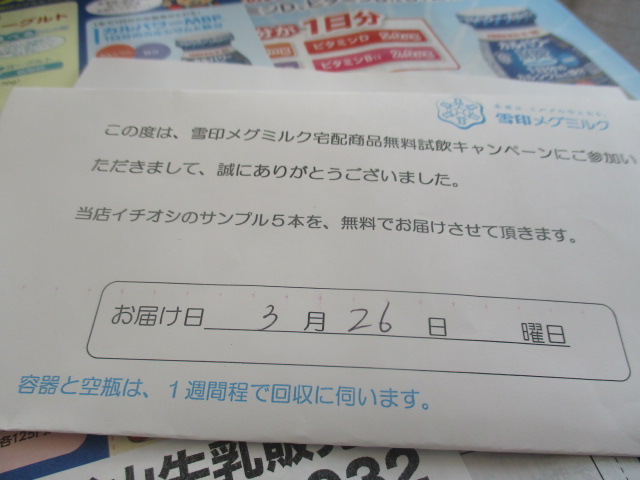 ーグルト
カルパワーMBP
1日分
ビタミンD
ビタミンB12
雪印メグミルク
この度は、雪印メグミルク宅配商品無料試飲キャンペーンにご参加い
ただきまして、誠にありがとうございました。
当店イチオシのサンプル5本を、無料でお届けさせて頂きます。
お届け日 3 月 26 日 曜日
容器と空瓶は、1週間程で回収に伺います。